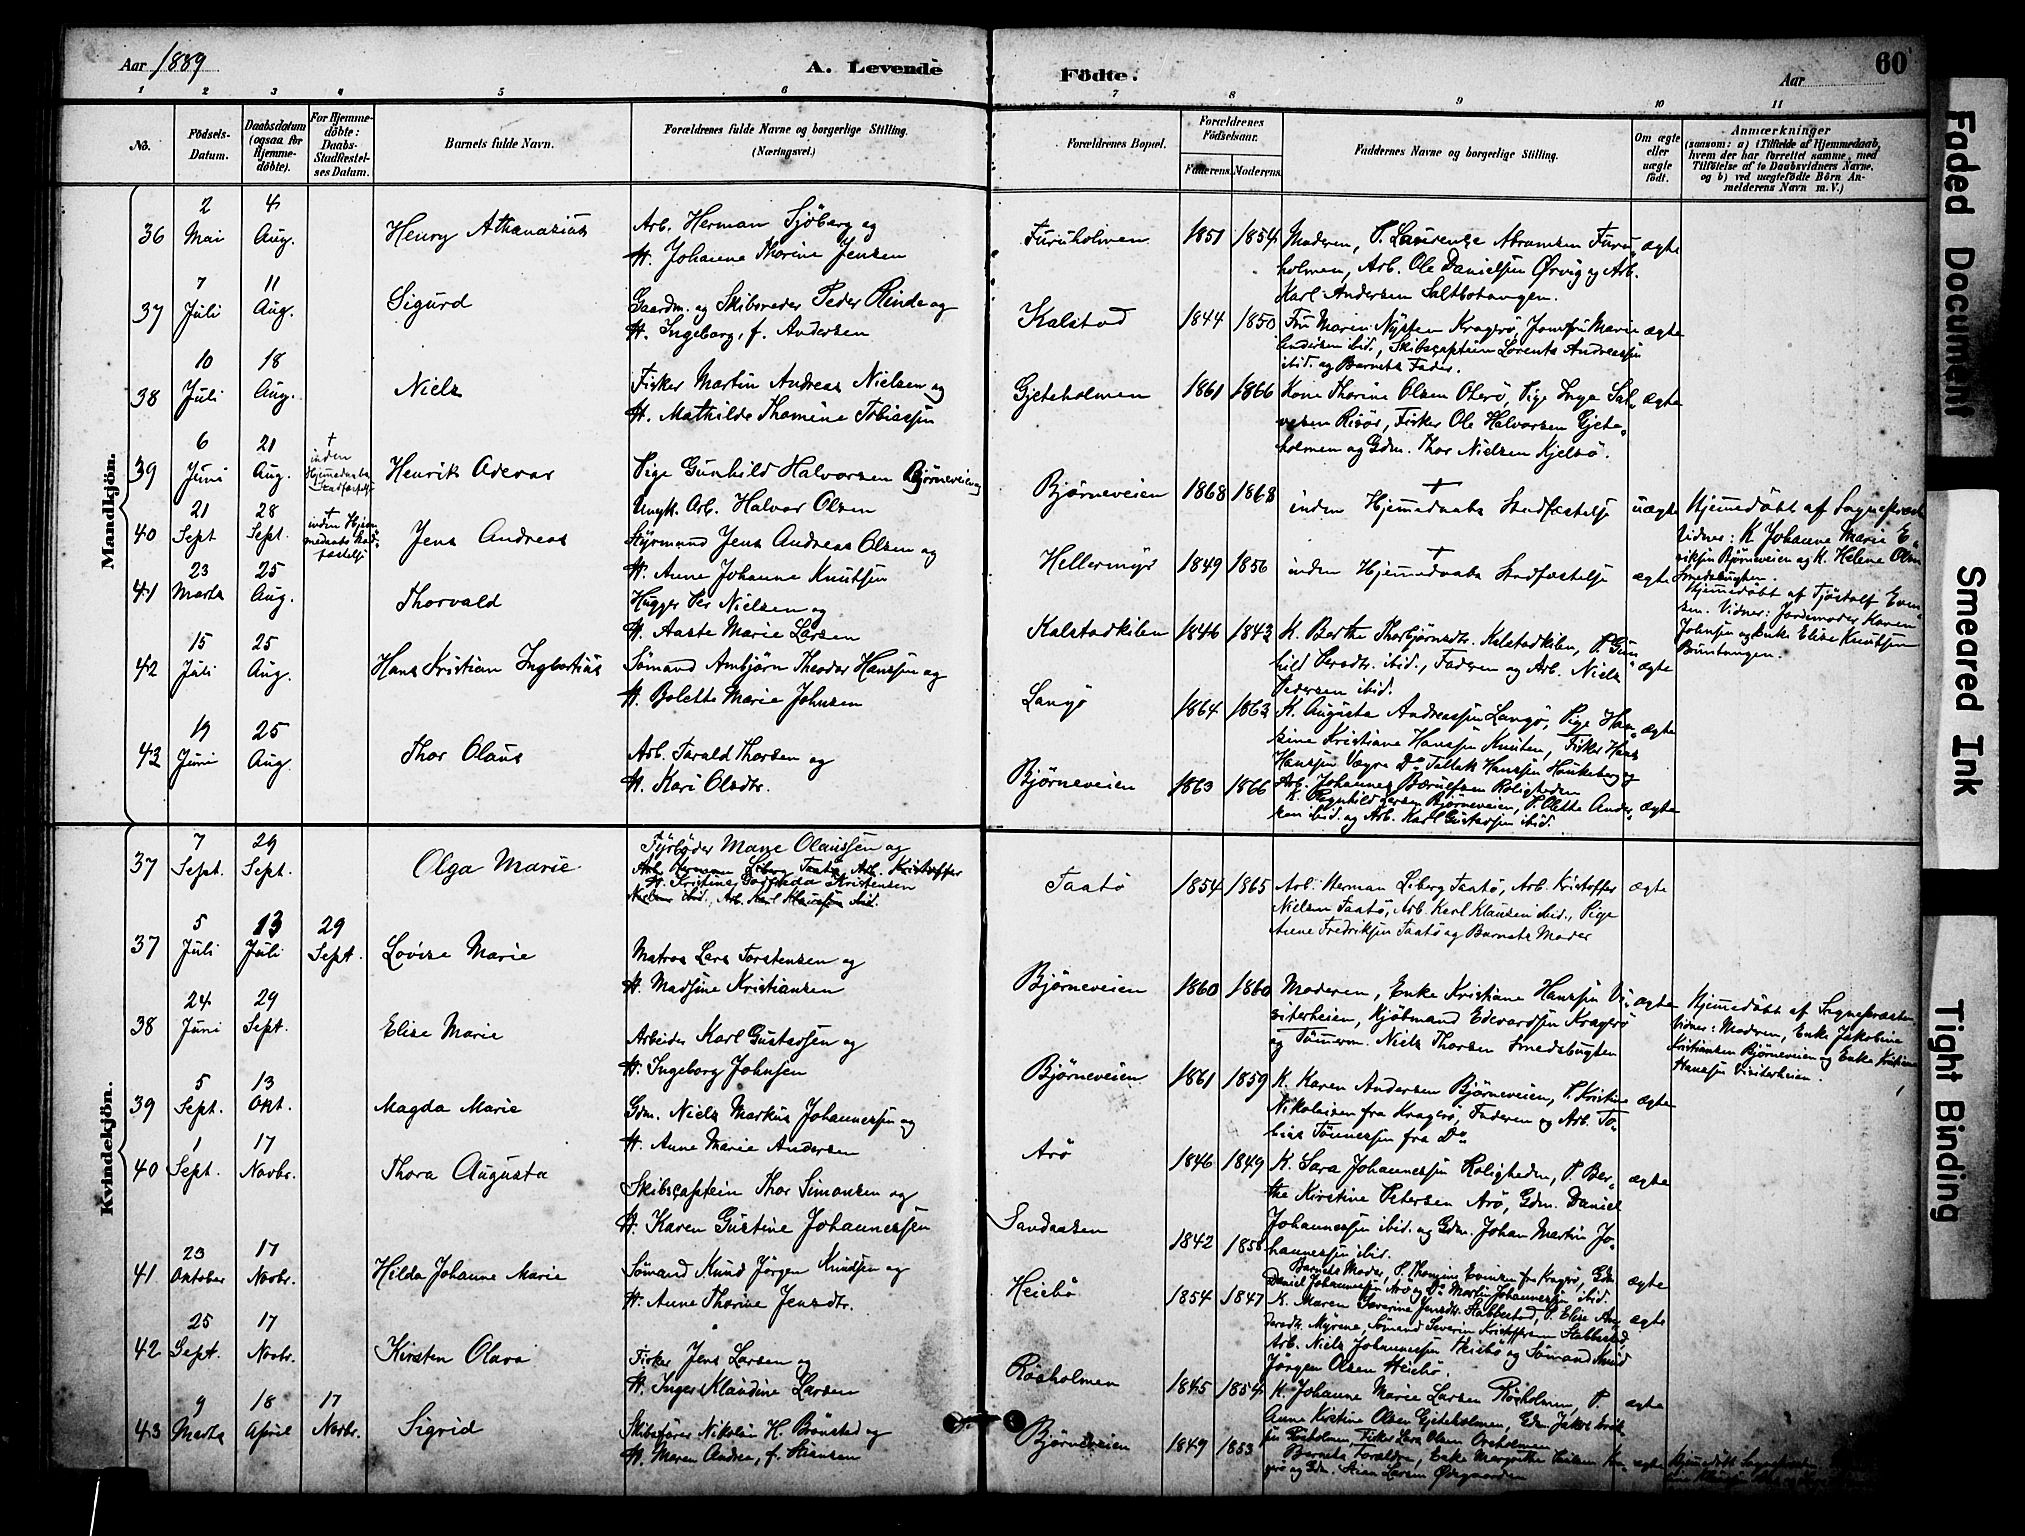 Aar 1889
A. Levende
Födte.
Aar
60
1 2 3 4 5 6 7 8 9 10 11
No.
Födsels-Datum.
Daabsdatum (ogsaa for Hjemmedöbte).
For Hjemmedöbte: Daabs-Stadfæstelses Datum.
Barnets fulde Navn.
Forældrenes fulde Navne og borgerlige Stilling. (Næringsvei.)
Forældrenes Bopæl.
Forældrenes Födselsaar.
Faderens. Moderens.
Faddernes Navne og borgerlige Stilling.
Om ægte eller uægte födt.
Anmærkninger
(saasom: a) i Tilfælde af Hjemmedaab, hvem der har forrettet samme, med Tilföielse af to Daabsvidners Navne, og b) ved uægtefödte Börn Anmelderens Navn m. V.)
Mandkjön.
36 2 Mai 4 Aug. Henry Athanasius
Arb. Herman Sjöberg og
H. Johanne Thorine Jensen
Furuholmen 1851 1854
Moderen, P. Laurenze Abramsen Furu-
holmen, Arb. Ole Danielsen Ørvig og Arb.
Karl Andersen Saltbotangen.
ægte
37 7 Juli 11 Aug. Sigurd
Gaardm. og Skibsreder Peder Rinde og
H. Ingeborg, f. Andersen
Kalstad 1844 1850
Fru Maren Nysten Kragerö, Jomfru Marie
Andersen ibid., Skibscaptein Lorents Andreassen
ibid. og Barnets Fader.
ægte
38 10 Juli 18 Aug. Niels
Fisker Martin Andreas Nielsen og
H. Mathilde Thomine Tobiassen
Gjeteholmen 1861 1866
Kone Thorine Olsen Oterö, Pige Inga Sal-
vesen Risör, Fisker Ole Halvorsen Gjete-
holmen og Gdm. Thor Nielsen Kjelsö.
ægte
39 6 Juni 21 Aug. † inden Hjemmedaabs Stadfæstelse
Henrik Adevar
Pige Gunhild Halvorsen Bjørneveien og
Ungk. Arb. Halvor Olsen
Bjørneveien 1868 1868
† inden Hjemmedaabs Stadfæstelse
uægte
Hjemmedöbt af Sognepræsten
Vidner: K. Johanne Marie E-
riksen Bjørneveien og K. Helene Olsen
Smedsbugten.
40 21 Sept 28 Sept. † inden Hjemmedaabs Stadfæstelse
Jens Andreas
Styrmand Jens Andreas Olsen og
H. Anne Johanne Knutsen
Hellermyr 1849 1856
† inden Hjemmedaabs Stadfæstelse
ægte
Hjemmedöbt af Tjöstolf Even-
sen. Vidner: Jordemoder Karen
Johnsen og Enke Elise Knutsen
Bruntangen.
41 23 Marts 25 Aug. Thorvald
Hugger Per Nielsen og
H. Aaste Marie Larsen
Kalstadkilen 1846 1843
K. Berthe Thorbjørnsdtr. Kalstadkilen, P. Gun-
hild Persdtr. ibid., Faderen og Arb. Niels
Pedersen ibid.
ægte
42 15 Juli 25 Aug. Hans Kristian Ingbertius
Sømand Ambjörn Theodor Hanssen og
H. Bolette Marie Johnsen
Langö 1864 1863
K. Augusta Andreassen Langö, Pige Han-
sine Kristiane Hanssen Knuten, Fisker Hans
Hanssen Vægra Do Tallak Hanssen Haukeberg og
Arb. Johannes Bærulfsen Roligheden
ægte
43 19 Juni 25 Aug. Thor Olaus
Arb. Tarald Thorsen og
H. Kari Olsdtr.
Bjørneveien 1863 1866
K. Ragnhild Larsen Bjørneveien, P. Olette Ander-
sen ibid. og Arb. Karl Gustavsen ibid.
ægte
Kvindekjön.
37 7 Sept. 29 Sept. Olga Marie
Fyrböder Mane Olaussen og
Arb. Herman Liberg Taatö, Arb. Kristoffer
H. Kristine Kristensen
Nielsen ibid., Arb. Karl Klausen ibid.
Taatö 1854 1865
Arb. Herman Liberg Taatö, Arb. Kristoffer
Nielsen Taatö, Arb. Karl Klausen ibid., Pige
Anne Fredriksen Taatö og Barnets Moder
ægte
37 5 Juli 13 Juli 29 Sept. Lovise Marie
Matros Lars Torstensen og
H. Madsine Kristiansen
Bjørneveien 1860 1860
Moderen, Enke Kristiane Hanssen Vi-
siterheien, Kjöbmand Edvardsen Kragerö
og Tömmerm. Niels Thorsen Smedsbugten
ægte
Hjemmedöbt af Sognepræsten
Vidner: Modren, Enke Jakobine
Kristiansen Bjørneveien og Enke Kristiane
Hanssen Visiterheien.
38 24 Juni 29 Sept. Elise Marie
Arbeider Karl Gustavsen og
H. Ingeborg Johnsen
Bjørneveien 1861 1859
K. Karen Andersen Bjørneveien, P. Kristine
Nikolaisen fra Kragerö, Faderen og Arb. To-
bias Tönnessen fra Do
ægte
39 5 Sept. 13 Okt. Magda Marie
Gdm. Niels Markus Johannessen og
H. Anne Marie Andersen
Arö 1846 1849
K. Sara Johannessen Roligheden, P. Ber-
the Kirstine Petersen Arö, Gdm. Daniel
Johannessen ibid. og Gdm. Johan Martin Jo-
hannessen ibid.
ægte
40 1 Sept. 17 Novbr. Thora Augusta
Skibscaptein Thor Simonsen og
H. Karen Gustine Johannessen
Sandaasen 1842 1855
Barnets Moder, P. Thomine Evensen fra Kragerö, Gdm.
Daniel Johannessen Arö og Do Martin Johannessen ibid.
ægte
41 23 Oktober 17 Novbr. Hilda Johanne Marie
Sømand Knud Jørgen Knudsen og
H. Anne Thorine Jensdtr.
Heiebö 1854 1847
K. Maren Severine Jensdtr. Stabbestad, P. Elise An-
dersdtr. Myrene, Sømand Severin Kristoffersen Stabbestad,
Arb. Niels Johannessen Heiebö og Sømand Knud
Jørgen Olsen Heiebö.
ægte
42 25 Sept. 17 Novbr. Kirsten Olava
Fisker Jens Larsen og
H. Inger Klaudine Larsen
Röshholmen 1845 1854
K. Johanne Marie Larsen Rösholmen, P.
Anne Kirstine Olsen Gjeteholmen, Gdm. Jakob Erik-
sen Rösholmen, Fisker Lars Olsen
ægte
43 9 Marts 18 April 17 Novbr. Sigrid
Skibsförer Nikolai H. Brönsted og
H. Maren Andrea, f. Stensen
Bjørneveien 1849 1853
Barnets Forældre, Enke Margrethe Kra-
gerö og Gdm. Lars Larsen
ægte
Hjemmedöbt Sognepræsten
Faded Document
Smeared Ink
Tight Binding